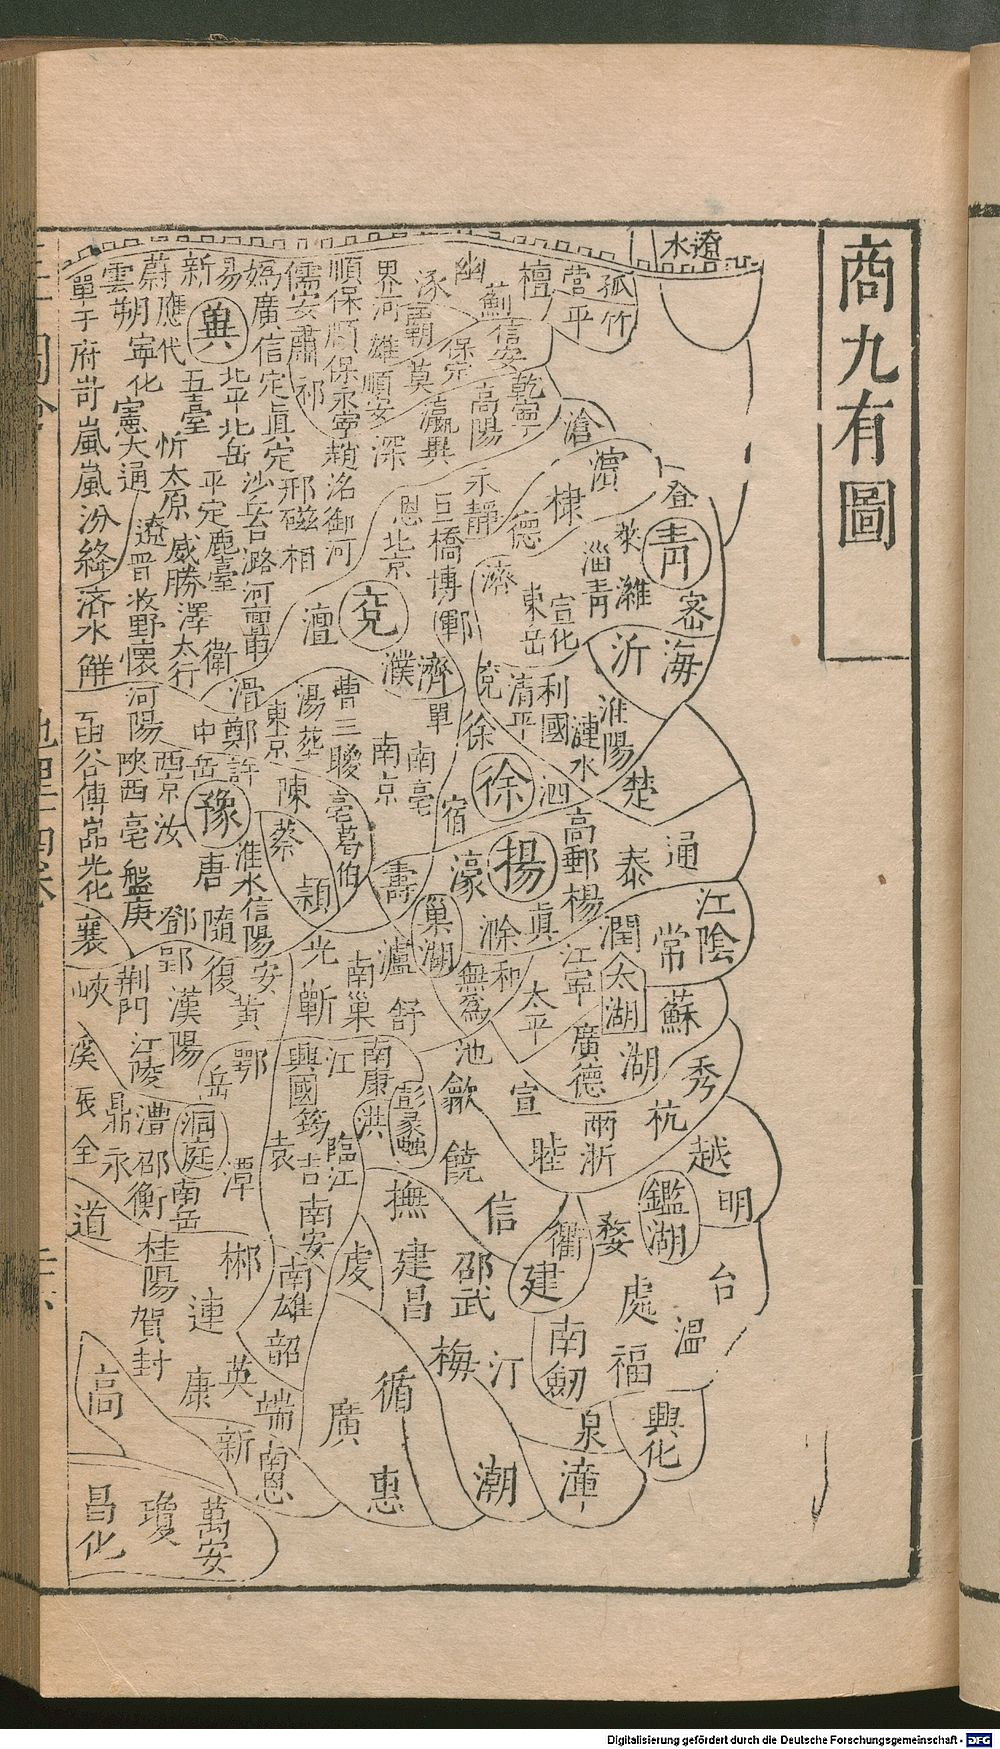 商九有圖
遼水
孤竹
營平
檀
薊
信安
乾寧
幽
保定
高陽
涿
莫
瀛
界河
雄
順安
深
順保
保
永寧
趙
洺
御河
儒
安肅
祁
邢
磁
相
媯
廣信
定
真定
沙丘臺
潞
易
北平
北岳
平定
鹿臺
新
五臺
忻
太原
威勝
澤
太行
衛
蔚
應
代
雲
朔
寧化
憲
大通
遼
晉
牧野
懷
單于府
岢嵐
嵐
汾
絳
濟水
解
滄
濱
棣
德
永靜
恩
北京
巨橋
博
鄆
濟
東岳
宣化
淄
青
濰
萊
登
青
密
沂
海
兗
澶
濮
濟
單
兗
清平
利國
徐
淮陽
漣水
楚
徐
泗
宿
曹
南京
南亳
湯葬
東京
滑
鄭
許
中岳
河陽
西京
汝
陝西亳
盤庚
函谷
傅
光化
襄
豫
唐
陳
蔡
潁
亳
葛伯
淮水
信陽
隨
鄧
郢
復
安
黃
漢陽
壽
濠
揚
高郵
楊
泰
通
真
滁
和
巢湖
無為
廬
舒
南巢
光
蘄
江陰
常
潤
太湖
蘇
江寧
太平
廣德
湖
秀
杭
兩浙
睦
宣
歙
池
饒
越
明
鑑湖
婺
衢
處
台
溫
信
建
南劒
福
興化
泉
漳
邵武
汀
建昌
撫
梅
潮
循
惠
廣
虔
南康
洪
江
興國
筠
臨江
袁
吉
南安
南雄
韶
英
端
南恩
新
康
連
郴
桂陽
賀
封
鄂
岳
洞庭
潭
南岳
衡
邵
永
全
道
鼎
澧
江陵
荆門
峽
溪
高
昌化
瓊
萬安
Digitalisierung gefördert durch die Deutsche Forschungsgemeinschaft - DFG